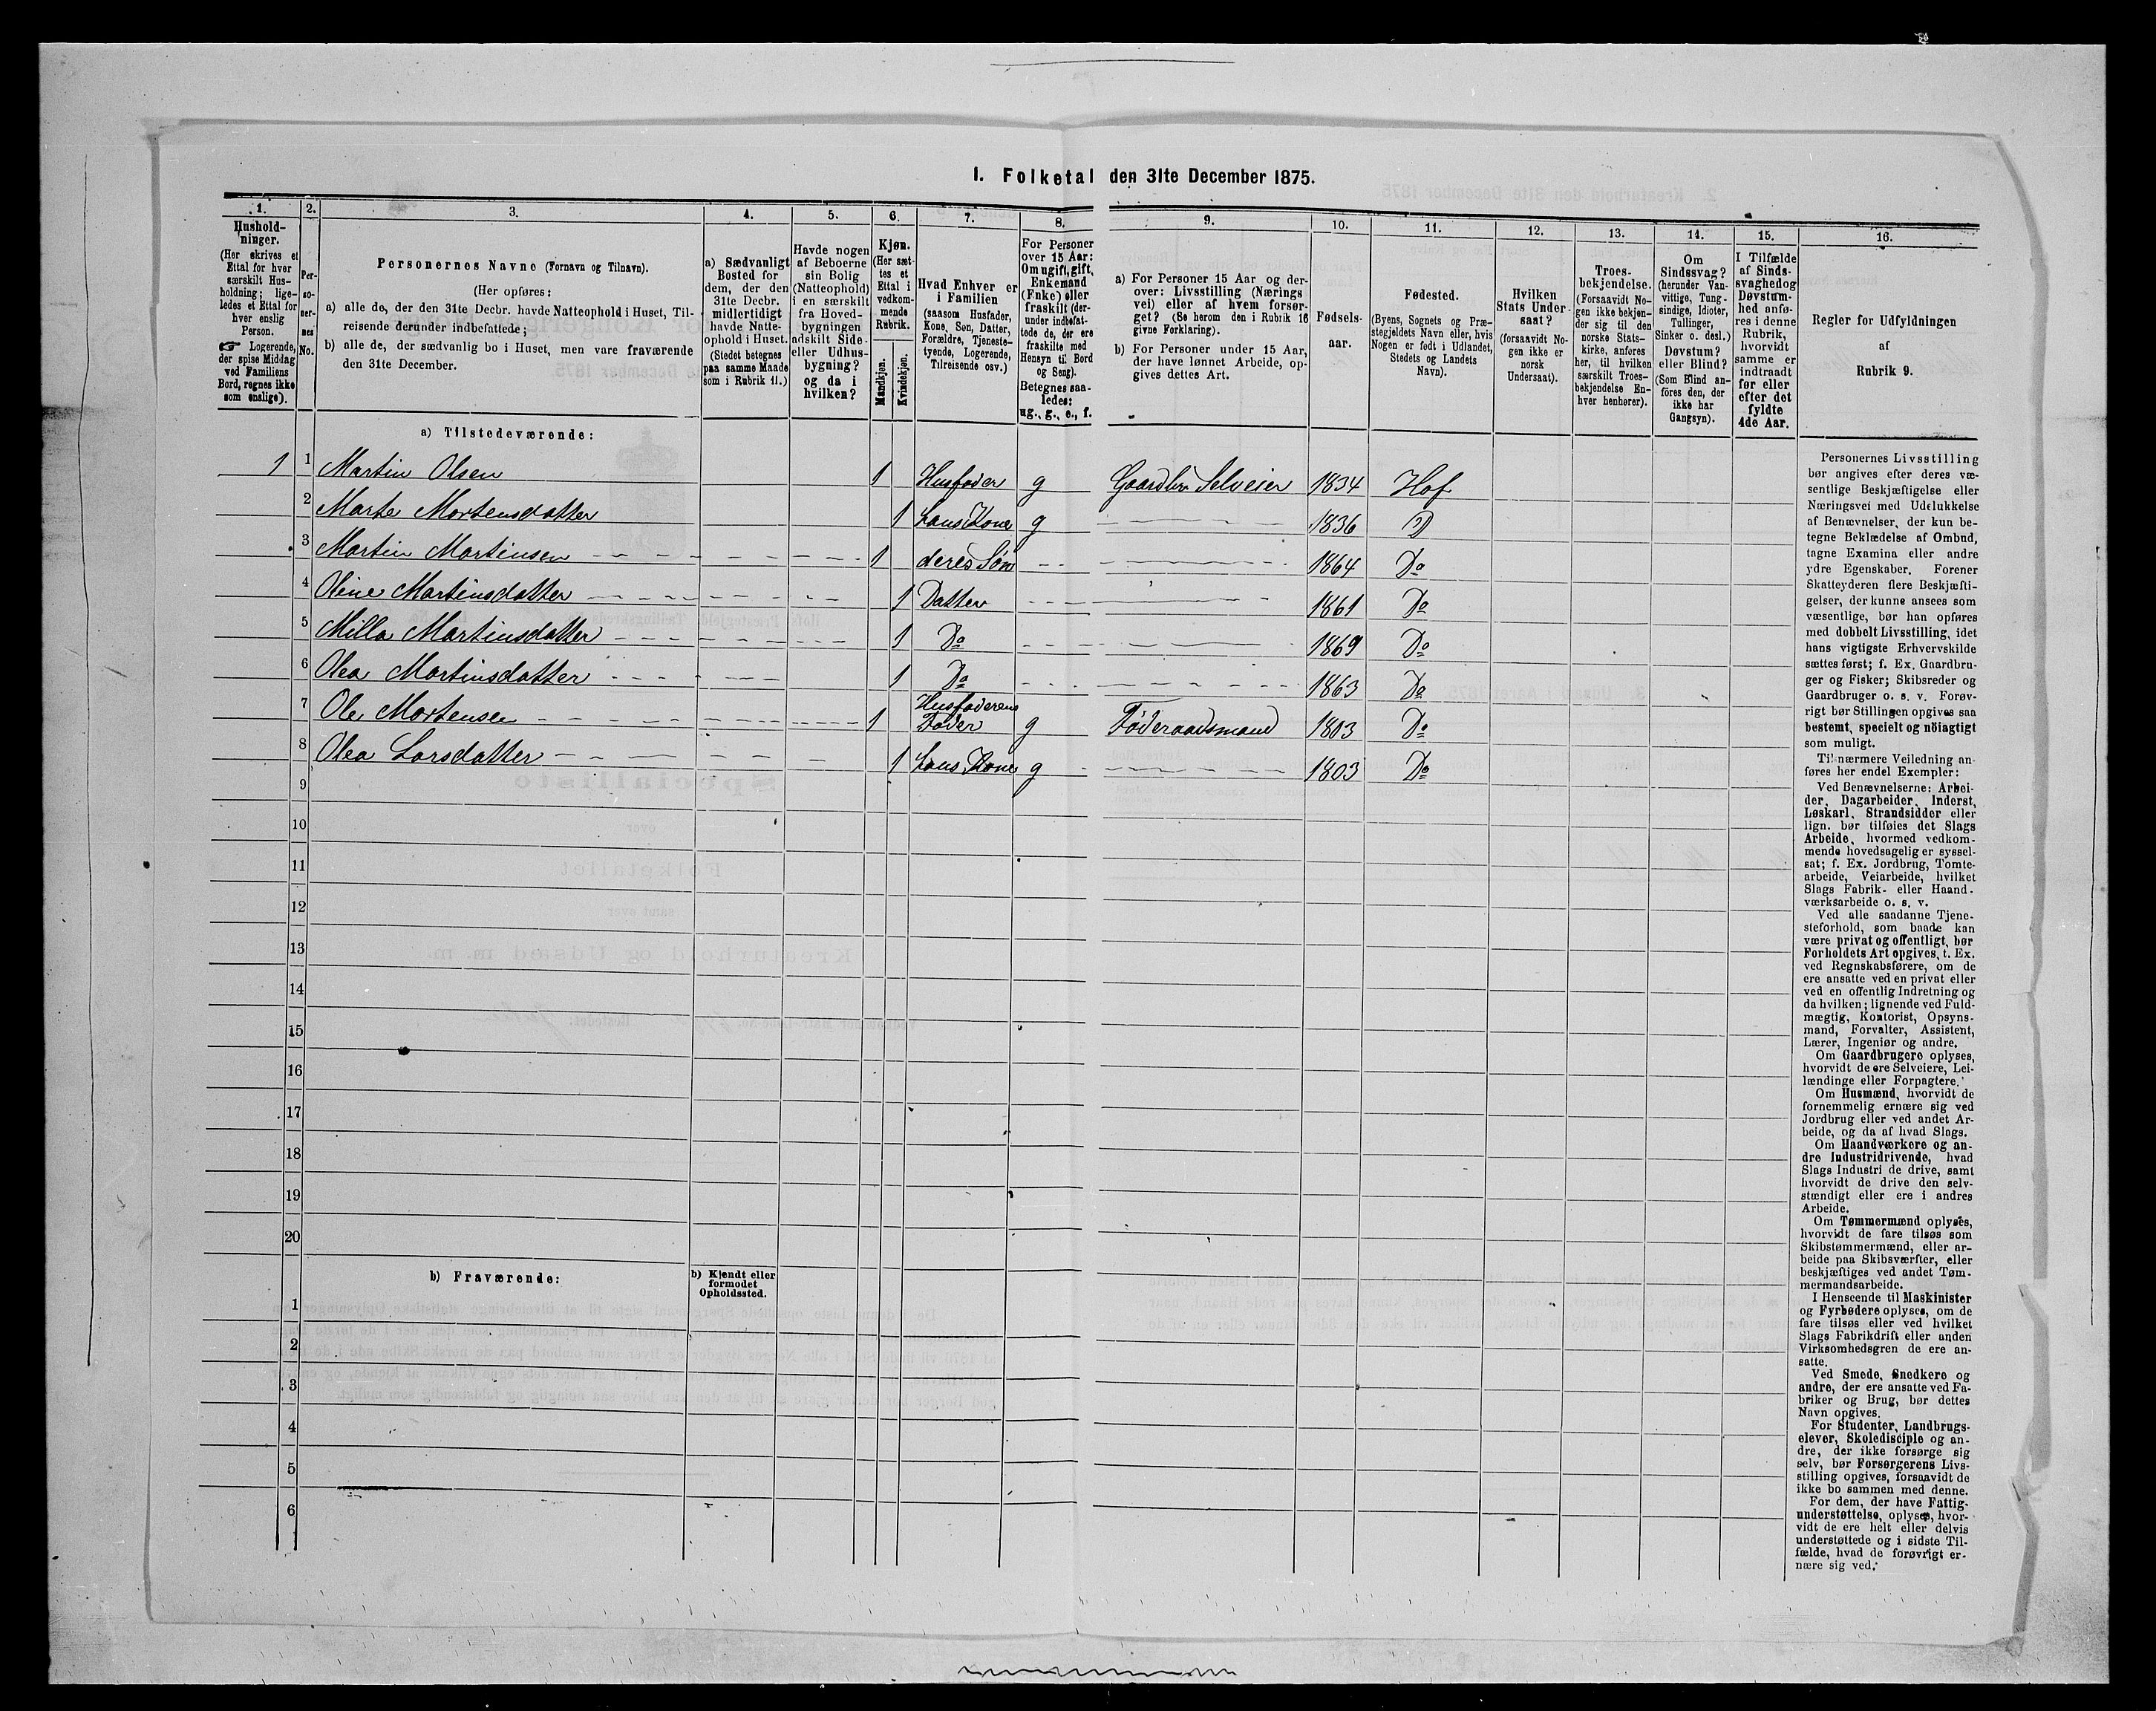 I. Folketal den 31te December 1875.
1. 2. 3. 4. 5. 6. 7. 8. 9. 10. 11. 12. 13. 14. 15. 16.
Hushold-
ninger.
(Her skrives et
Ettal for hver
særskilt Hus-
holdning; lige-
ledes et Ettal for
hver enslig
Person.
☞ Logerende,
der spise Middag
ved Familiens
Bord, regnes ikke
som enslige).
Per-
so-
ner-
nes
No.
Personernes Navne (Fornavn og Tilnavn).
(Her opføres:
a) alle de, der den 31te Decbr. havde Natteophold i Huset, Til-
reisende derunder indbefattede;
b) alle de, der sædvanlig bo i Huset, men vare fraværende
den 31te December.
a) Sædvanligt
Bosted for
dem, der den
31te Decbr.
midlertidigt
havde Natte-
ophold i Huset.
(Stedet betegnes
paa samme Maade
som i Rubrik 11.)
Havde nogen
af Beboerne
sin Bolig
(Natteophold)
i en særskilt
fra Hoved-
bygningen
adskilt Side-
eller Udhus-
bygning?
og da i
hvilken?
Kjøn.
(Her sæt-
tes et
Ettal i
vedkom-
mende
Rubrik.
Mandkjøn.
Kvindekjøn.
Hvad Enhver er
i Familien
(saasom Husfader,
Kone, Søn, Datter,
Forældre, Tjeneste-
tyende, Logerende,
Tilreisende osv.)
For Personer
over 15 Aar:
Om ugift, gift,
Enkemand
(Enke) eller
fraskilt (der-
under indbefat-
tede de, der ere
fraskilte med
Hensyn til Bord
og Seng).
Betegnes saa-
ledes:
ug., g., e., f.
a) For Personer 15 Aar og der-
over: Livsstilling (Nærings
vei) eller af hvem forsør-
get? (Se herom den i Rubrik 16
givne Forklaring).
b) For Personer under 15 Aar,
der have lønnet Arbeide, op-
gives dettes Art.
Fødsels-
aar.
Fødested.
(Byens, Sognets og Præ-
stegjeldets Navn eller, hvis
Nogen er født i Udlandet,
Stedets og Landets
Navn).
Hvilken
Stats Under-
saat?
(forsaavidt No-
gen ikke er
norsk
Undersaat).
Troes-
bekjendelse.
(Forsaavidt No-
gen ikke bekjen-
der sig til den
norske Stats-
kirke, anføres
her, til hvilken
særskilt Troes-
bekjendelse En-
hver henhører).
Om
Sindssvag?
(herunder Van-
vittige, Tung-
sindige, Idioter,
Tullinger,
Sinker o. desl.)
Døvstum?
eller Blind?
(Som Blind an-
føres den, der
ikke har
Gangsyn).
I Tilfælde
af Sinds-
svaghed og
Døvstum-
hed anfø-
res i denne
Rubrik,
hvorvidt
samme er
indtraadt
før eller
efter det
fyldte
4de Aar.
Regler for Udfyldningen
af
Rubrik 9.
a) Tilstedeværende:
1 1 Martin Olsen 1 Husfader g Gaardbr. Selveier 1834 Hof
2 Marte Mortensdatter 1 hans Kone g 1836 D
3 Martin Martinsen 1 deres Søn 1864 Do
4 Oline Martinsdatter 1 Datter 1861 Do
5 Milla Martinsdatter 1 Do 1869 Do
6 Olea Martinsdatter 1 Do 1863 Do
7 Ole Mortensen 1 Husfaderens Fader g Føderaadsmand 1803 Do
8 Olea Larsdatter 1 hans Kone g 1803 Do
9
10
11
12
13
14
15
16
17
18
19
20
b) Fraværende:
b) Kjendt eller
formodet
Opholdssted.
1
2
3
4
5
6
Personernes Livsstilling
bør angives efter deres væ-
sentlige Beskjæftigelse eller
Næringsvei med Udelukkelse
af Benævnelser, der kun be-
tegne Beklædelse af Ombud,
tagne Examina eller andre
ydre Egenskaber. Forener
Skatteyderen flere Beskjæfti-
gelser, der kunne ansees som
væsentlige, bør han opføres
med dobbelt Livsstilling, idet
hans vigtigste Erhvervskilde
sættes først; f. Ex. Gaardbru-
ger og Fisker; Skibsreder og
Gaardbruger o. s. v. Forøv-
rigt bør Stillingen opgives saa
bestemt, specielt og nöiagtigt
som muligt.
Til nærmere Veiledning an-
føres her endel Exempler:
Ved Benævnelserne: Arbei-
der, Dagarbeider, Inderst,
Løskarl, Strandsidder eller
lign. bør tilføies det Slags
Arbeide, hvormed vedkom-
mende hovedsagelig er syssel-
sat; f. Ex. Jordbrug, Tomte-
arbeide, Veiarbeide, hvilket
Slags Fabrik- eller Haand-
værksarbeide o. s. v.
Ved alle saadanne Tjene-
steforhold, som baade kan
være privat og offentligt, bør
Forholdets Art opgives, t. Ex.
ved Regnskabsførere, om de
ere ansatte ved en privat eller
ved en offentlig Indretning og
da hvilken; lignende ved Fuld-
mægtig, Kontorist, Opsyns-
mand, Forvalter, Assistent,
Lærer, Ingeniør og andre.
Om Gaardbrugere oplyses,
hvorvidt de ere Selveiere, Lei-
lændinge eller Forpagtere.
Om Husmænd, hvorvidt de
fornemmelig ernære sig ved
Jordbrug eller ved andet Ar-
beide, og da af hvad Slags.
Om Haandværkere og an-
dre Industridrivende, hvad
Slags Industri de drive, samt
hvorvidt de drive den selv-
stændigt eller ere i andres
Arbeide.
Om Tømmermænd oplyses,
hvorvidt de fare tilsøs som
Skibstømmermænd, eller ar-
beide paa Skibsværfter, eller
beskjæftiges ved andet Tøm-
mermandsarbeide.
I Henseende til Maskinister
og Fyrbødere oplyses, om de
fare tilsøs eller ved hvilket
Slags Fabrikdrift eller anden
Virksomhedsgren de ere an-
satte.
Ved Smede, Snedkere og
andre, der ere ansatte ved Fa-
briker og Brug, bør dettes
Navn opgives.
For Studenter, Landbrugs-
elever, Skoledisciple og an-
dre, der ikke forsørge sig
selv, bør Forsørgerens Livs-
stilling opgives, forsaavidt de
ikke bo sammen med denne.
For dem, der have Fattig-
understøttelse, oplyses, hvor-
vidt de ere helt eller delvis
understøttede og i sidste Til-
fælde, hvad de forøvrigt er-
nære sig ved.